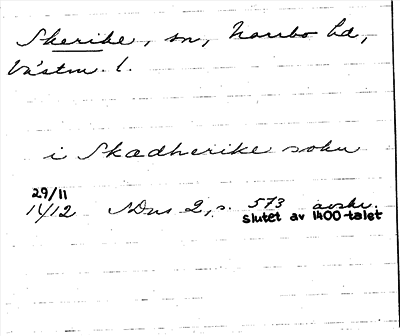 Skerike, sn, Norrbo hd,
Västm. l.
i Skadherike sokn
29/11
1412 SDns 2, s. 573 avskr.
slutet av 1400-talet